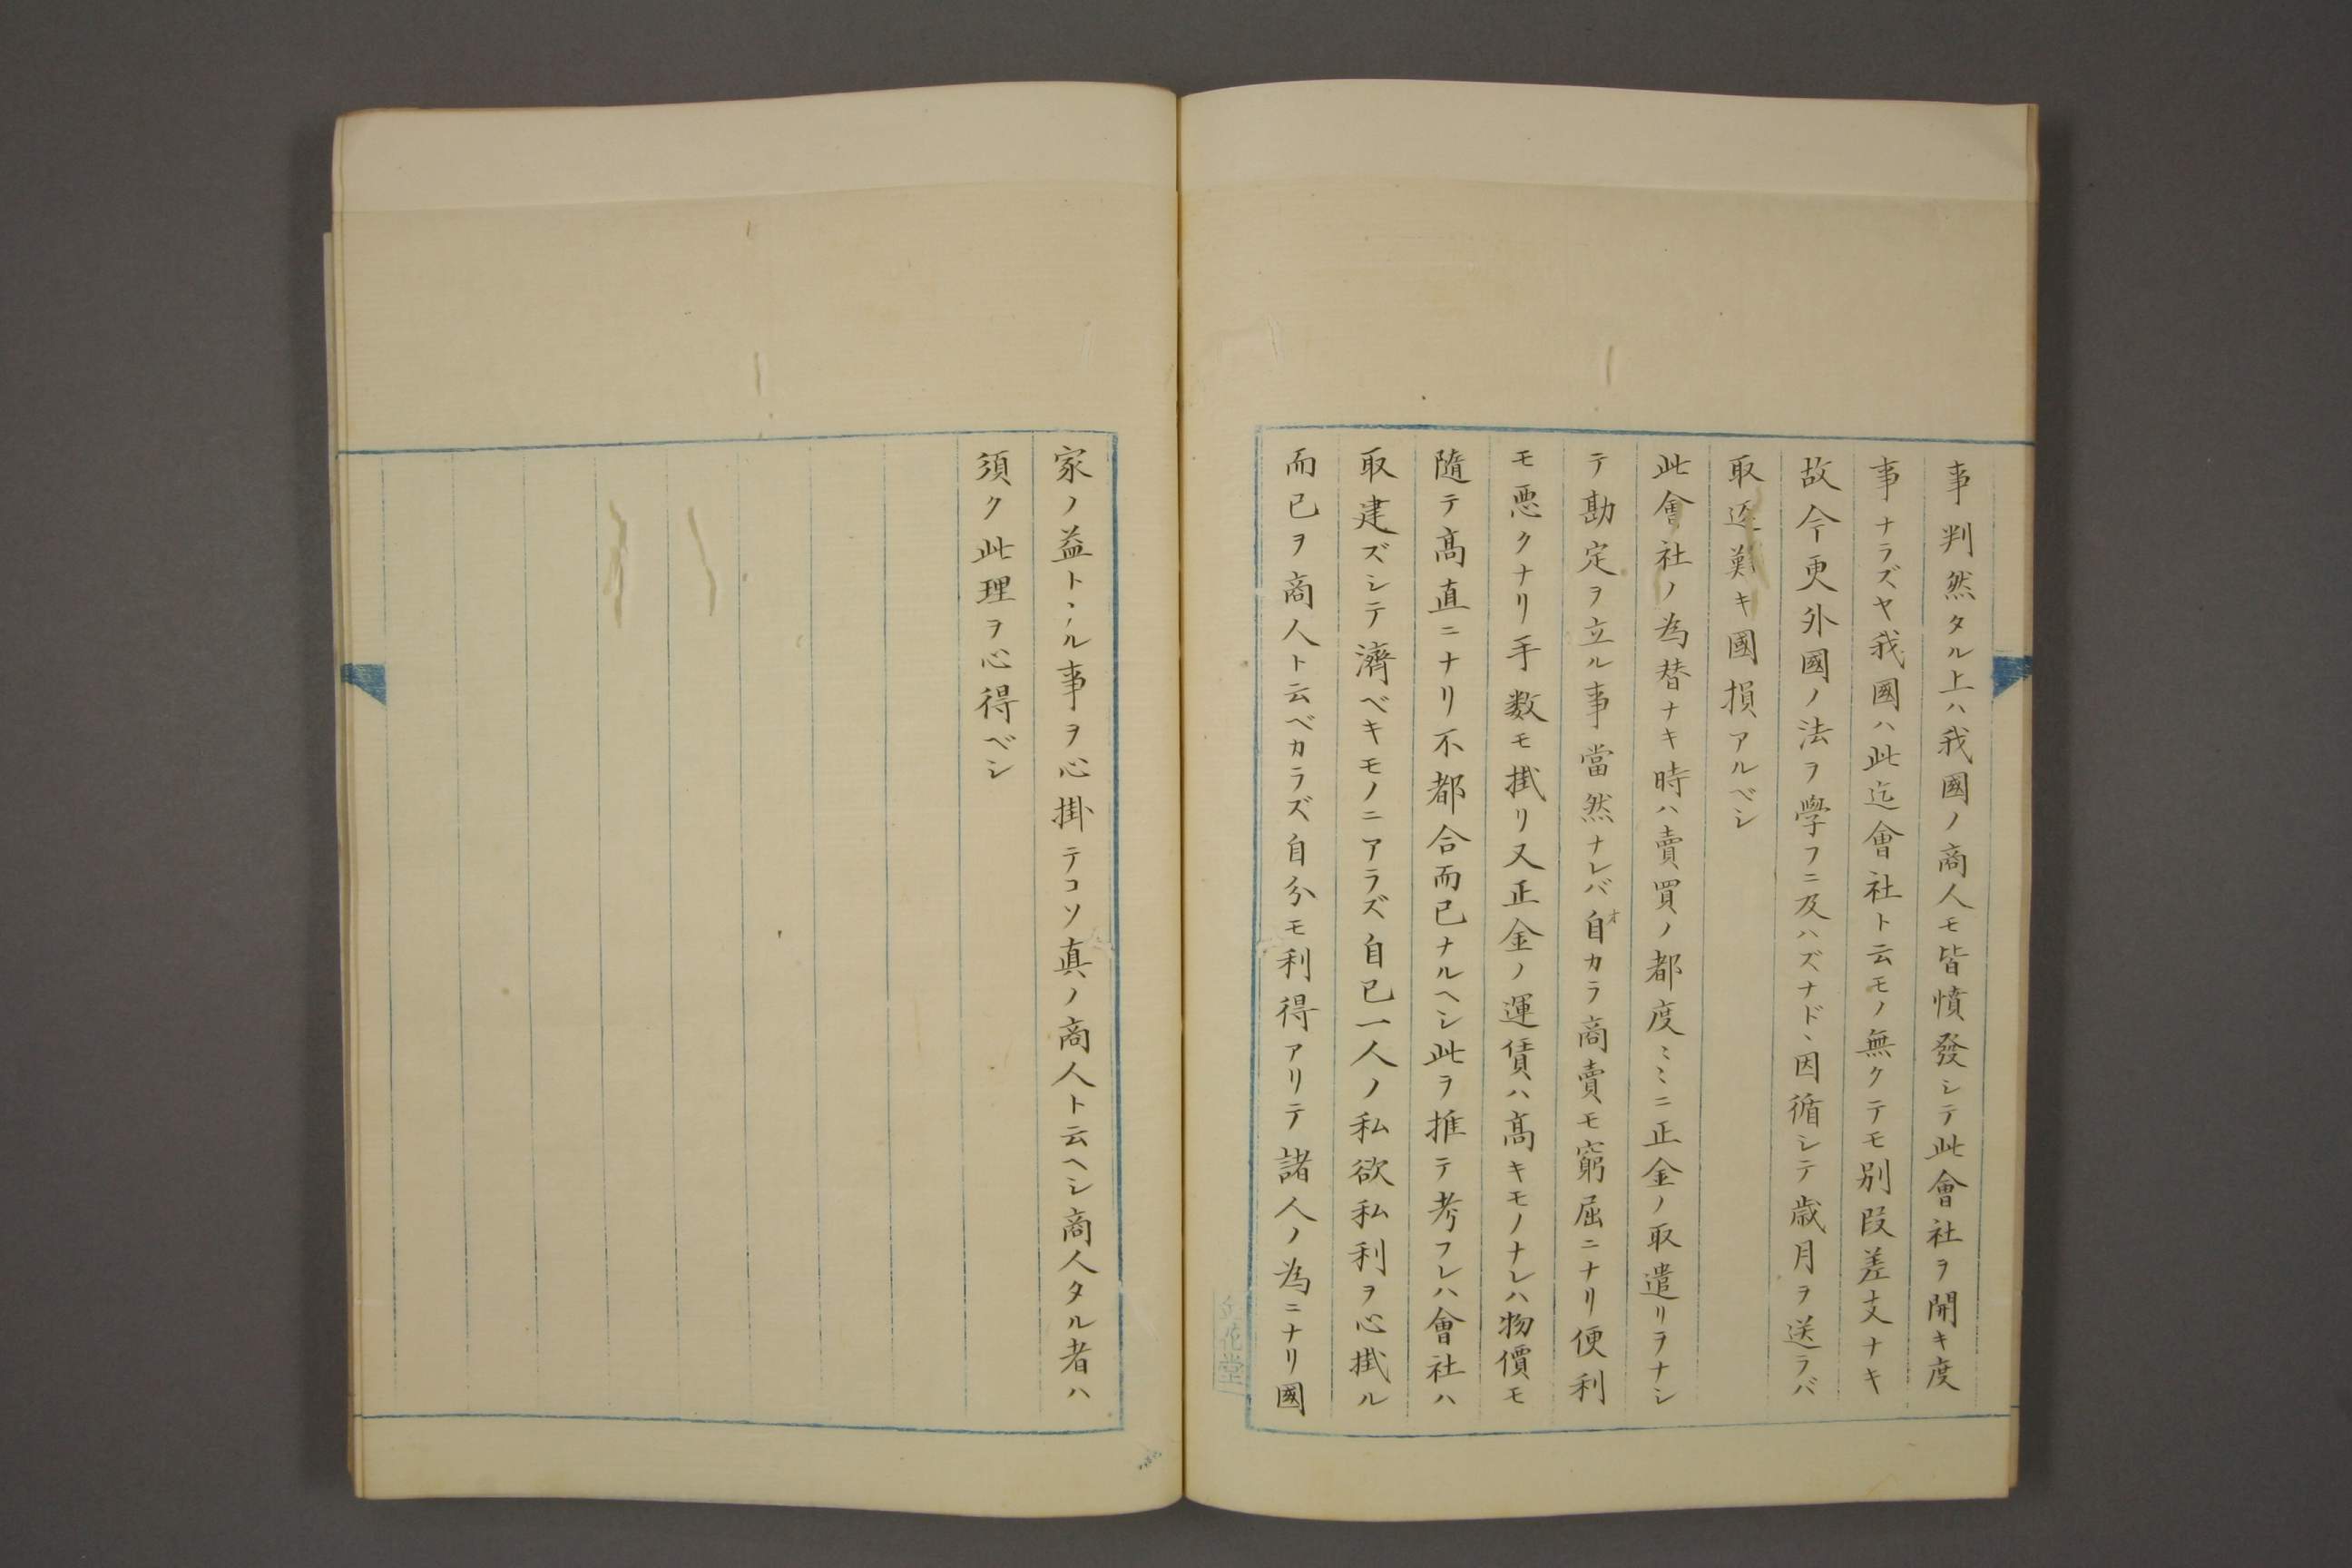 事判然タル上ハ我國ノ商人モ皆憤發シテ此會社ヲ開キ度
事ナラズヤ我國ハ此迄會社ト云モノ無クテモ別段差支ナキ
故今更外國ノ法ヲ學フニ及ハズナドヽ因循シテ歳月ヲ送ラバ
取返難キ國損アルベシ
此會社ノ為替ナキ時ハ賣買ノ都度ミミニ正金ノ取遣リヲナシ
テ勘定ヲ立ル事當然ナレバ自カラ商賣モ窮屈ニナリ便利
オ
モ悪クナリ手数モ掛リ又正金ノ運賃ハ髙キモノナレハ物價モ
隨テ髙直ニナリ不都合而已ナルヘシ此ヲ推テ考フレハ會社ハ
取建ズシテ濟ベキモノニアラズ自已一人ノ私欲私利ヲ心掛ル
而已ヲ商人ト云ベカラズ自分モ利得アリテ諸人ノ為ニナリ國
家ノ益トヽル事ヲ心掛テコソ真ノ商人ト云ヘシ商人タル者ハ
須ク此理ヲ心得ベシ